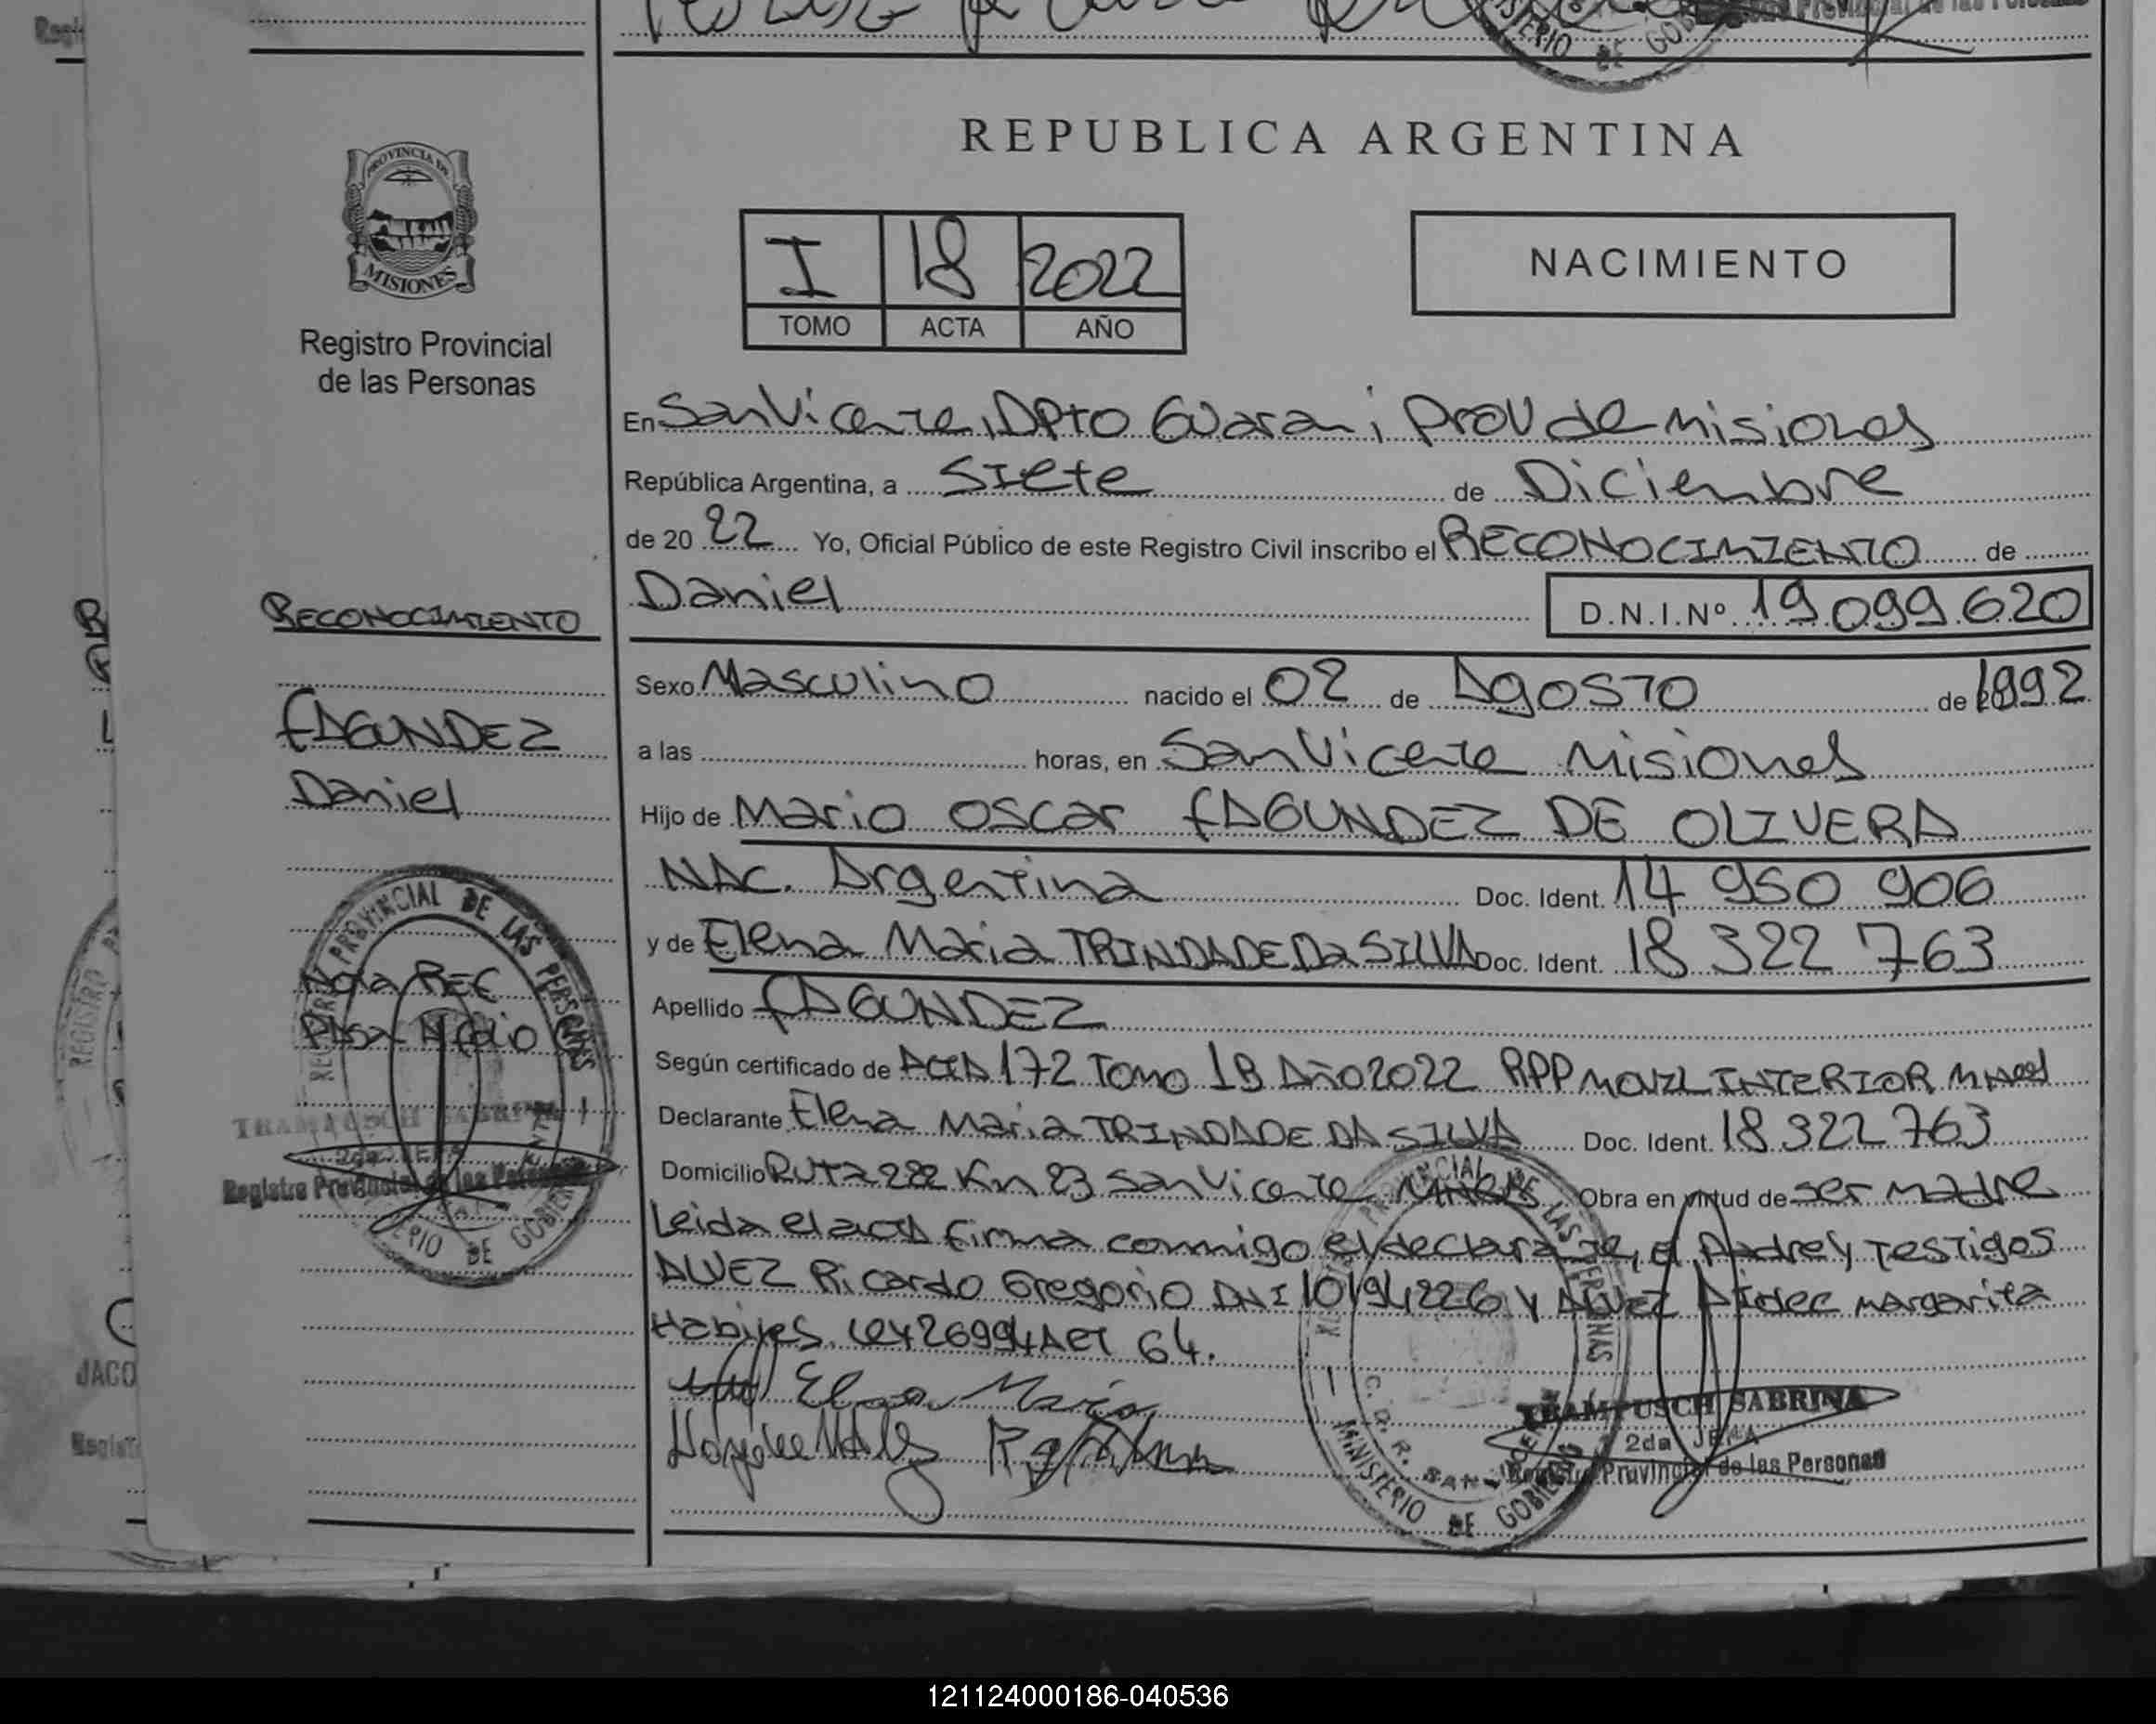 REPUBLICA ARGENTINA
PROVINCIA DE
MISIONES
Registro Provincial
de las Personas
I 18 2022
TOMO ACTA AÑO
NACIMIENTO
En San Vicente, Dpto Guarani Prov de Misiones
República Argentina, a Siete de Diciembre
de 20 22 Yo, Oficial Público de este Registro Civil inscribo el RECONOCIMIENTO de
Daniel D.N.I.Nº 19 099 620
Sexo Masculino nacido el 02 de Agosto de 1992
a las horas, en San Vicente Misiones
Hijo de Mario Oscar FAGUNDEZ DE OLIVERA
NAC. Argentina Doc. Ident. 14 950 906
y de Elena Maria TRINDADE Da SILVA Doc. Ident. 18 322 763
Apellido FAGUNDEZ
Según certificado de ACTA 172 Tomo 1B Año 2022 RPP MOVIL INTERIOR
Declarante Elena Maria TRINDADE DA SILVA Doc. Ident. 18 322 763
Domicilio Ruta 222 Km 23 San Vicente Obra en virtud de ser madre
Leida el acta firma conmigo el declarante, el Padre y Testigos
ALVEZ Ricardo Gregorio DNI y ALVEZ margarita
Habiles. Art 64.
Elena Maria
TRAMPUSCH SABRINA
2da JEFA
Registro Provincial de las Personas
REGISTRO PROVINCIAL DE LAS PERSONAS
MINISTERIO DE GOBIERNO
RECONOCIMIENTO
FAGUNDEZ
Daniel
Nota REC
Pasa A folio
TRAMPUSCH SABRINA
2da JEFA
Registro Provincial de las Personas
REGISTRO PROVINCIAL DE LAS PERSONAS
MINISTERIO DE GOBIERNO
JACO
121124000186-040536